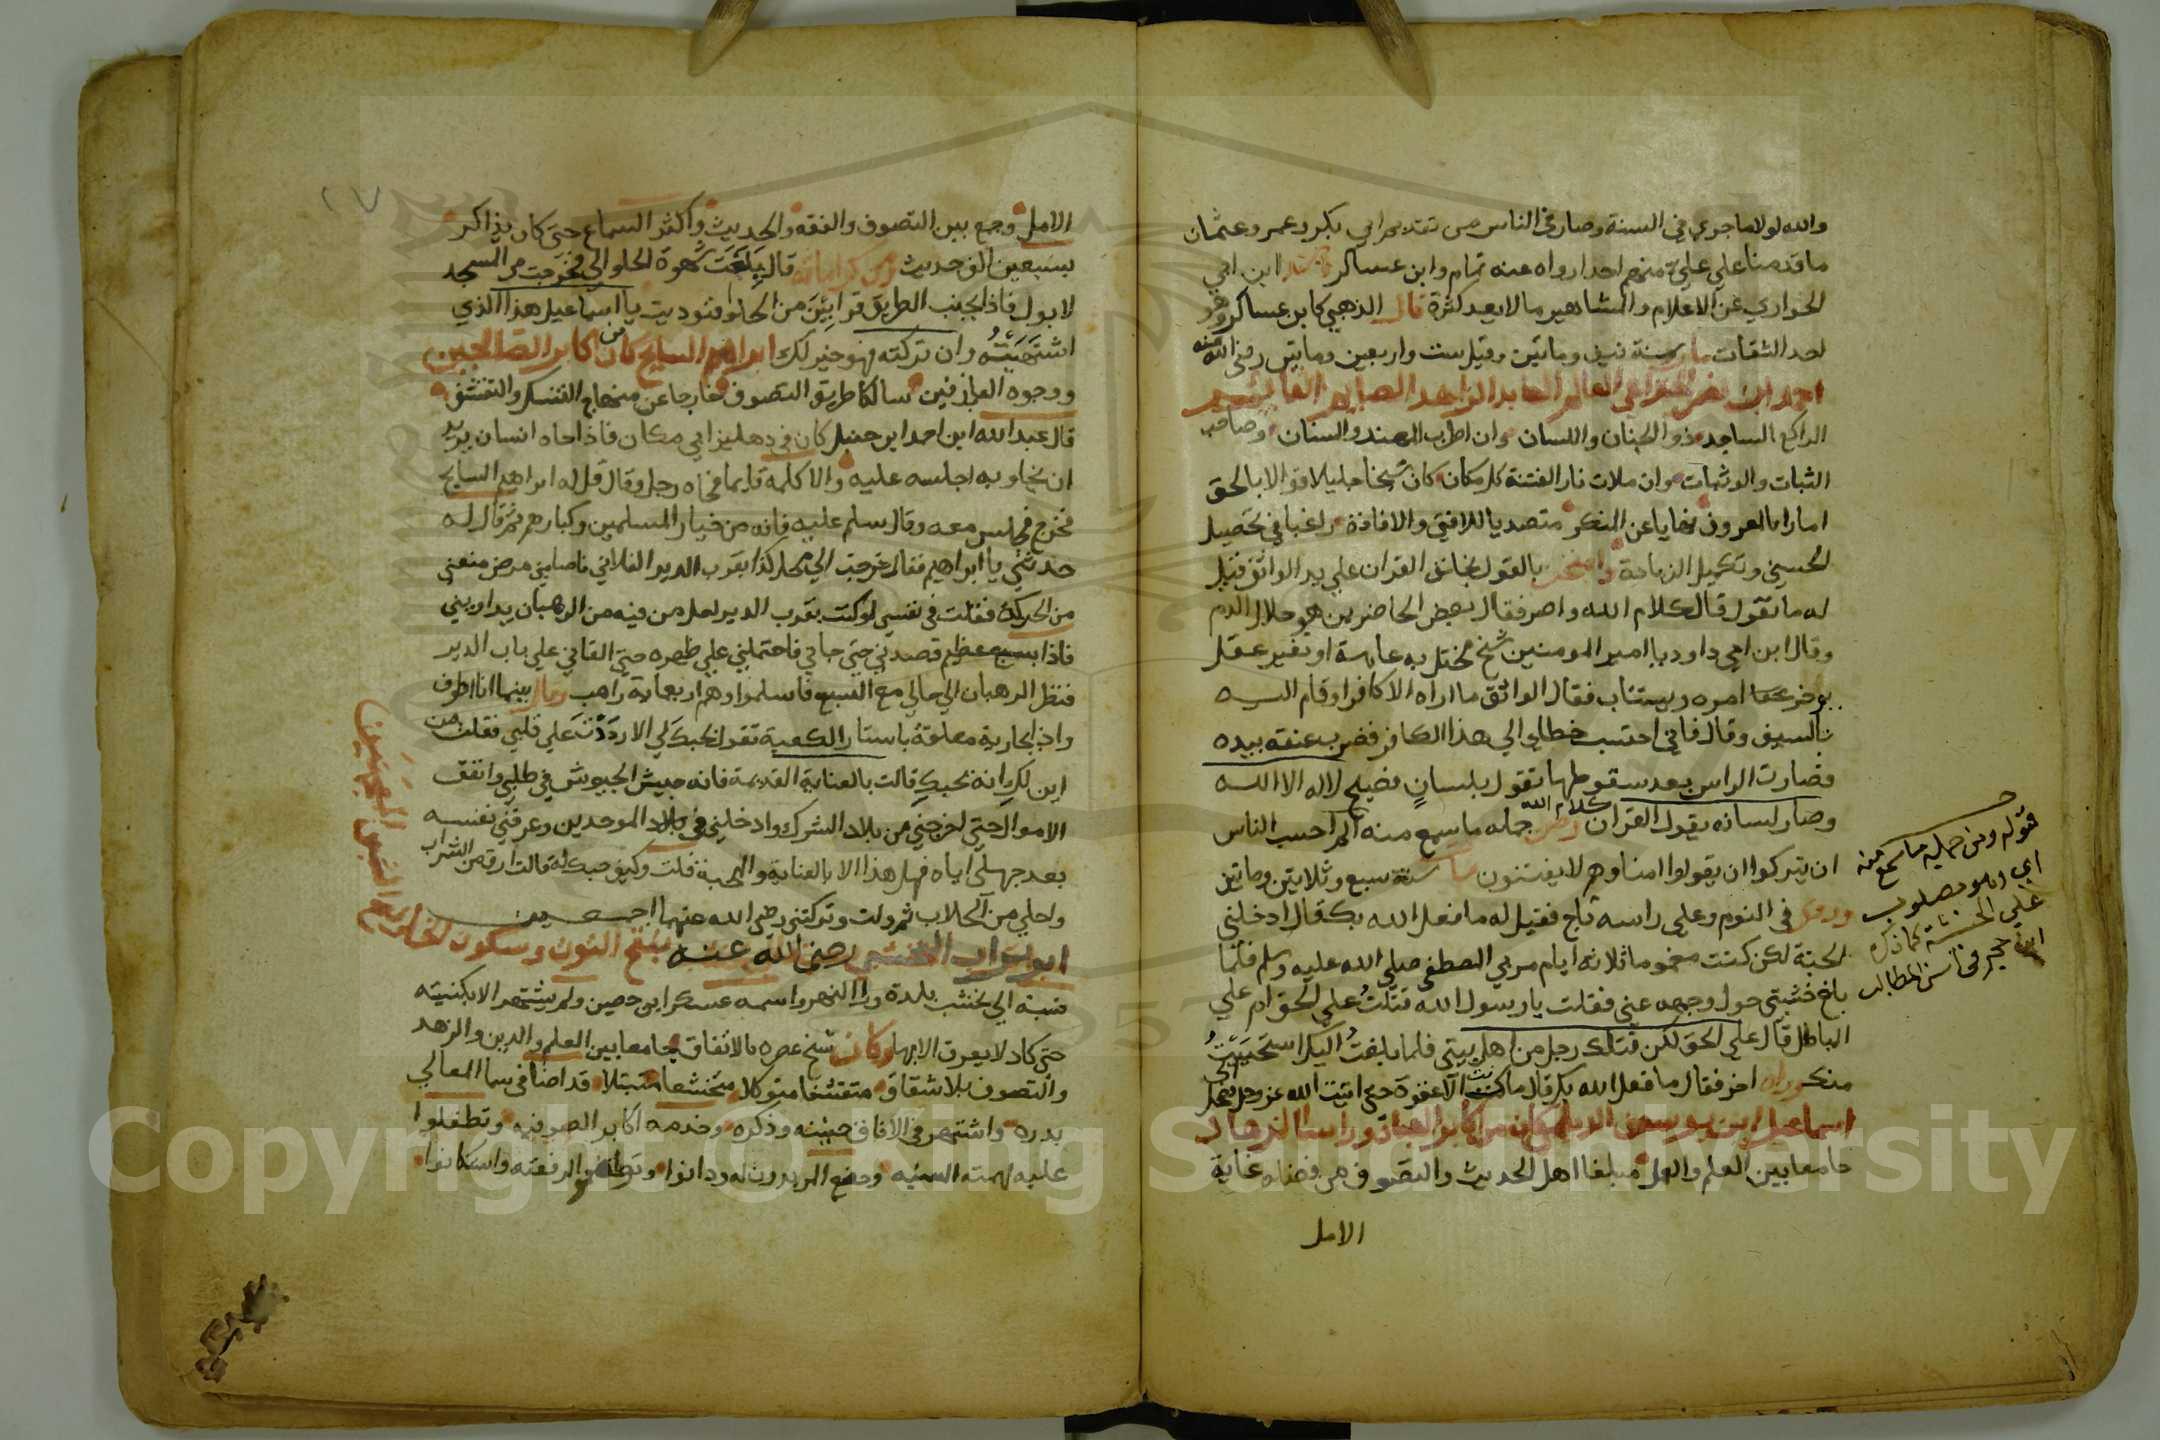 والله لولا ما جري في السنة وصار في الناس من تقديم ابي بكر وعمر وعثمان
ما قدمنا علي علي منهم احدا رواه عنه تمام وابن عساكر ابن ابي
الحواري عن الاعلام والمشاهير ما لا يعد كثرة قال الذهبي كابن عساكر وهو
احد الثقات مات سنة نيف وماتين وقيل ست واربعين وماتين رضي الله عنه
احمد ابن نصر الخزاعي العالم العابد الزاهد الصابر القائم
الراكع الساجد ذو الجنان واللسان وان اضطرب المهند والسنان وصاحب
الثبات والوثبات وان ملات نار الفتنة كل مكان كان شيخا جليلا قوالا بالحق
امارا بالعروف نهايا عن المنكر متصديا للافتي والافادة راغبا في تحصيل
الحسني وتكميل الزيادة وامتحن بالقول بخلق القران علي يد الواثق فقيل
له ما تقول قال كلام الله واصر فقال بعض الحاضرين هو حلال الدم
وقال ابن ابي داود يا امير المومنين شيخ مختل به عاهة او تغير عقل
يوخر امره ويستتاب فقال الواثق ما اراه الا كافرا وقام اليه
بالسيف وقال فاني احتسب خطاي الي هذا الكافر فضرب عنقه بيده
فصارت الراس بعد سقوطها تقول بلسان فصيح لا اله الا الله
وصار لسانه يقول القران كلام الله ومن جمله ما سمع منه الم احسب الناس
ان يتركوا ان يقولوا امنا وهم لا يفتنون مات سنة سبع وثلاثين وماتين
وروي في النوم وعلي راسه تاج فقيل له ما فعل الله بك قال ادخلني
الجنة لكن كنت مغموما ثلاثه ايام مر بي المصطفي صلي الله عليه وسلم فلما
بلغ خشبتي حول وجهه عني فقلت يا رسول الله قتلت علي الحق ام علي
الباطل قال علي الحق لكن قتلك رجل من اهل بيتي فلما بلغت اليك استحييت
منك وراه اخر فقال ما فعل الله بك قال ما كنت الا غفوة حتي اتيت الله عز وجل فضحك الي
اسماعيل ابن يوسف الديلمي كان من اكابر العباد وراس الزهاد
جامعا بين العلم والعمل مبلغا اهل الحديث والتصوف من فضله غاية
الامل
قوله ومن جمله ما سمع منه
اي وهو مصلوب
علي الخشبة كما ذكره
ابن حجر في اسني المطالب
الامل وجمع بين التصوف والفقه والحديث واكثر السماع حتي كان يذاكر
بسبعين الف حديث ومن كراماته قال بلغت شهوة الحلو الي فخرجت من المسجد
لابول فاذا بجنب الطريق قرابتين من الحلو فنوديت يا اسماعيل هذا الذي
اشتهيته وان تركته فهو خير لك ابراهيم السايح كان من اكابر الصالحين
ووجوه العارفين سالكا طريق التصوف خارجا عن منهاج التنسك والتقشف
قال عبد الله ابن احمد ابن حنبل كان في دهليز ابي مكان فاذا جاه انسان يريد
ان يخلو به اجلسه عليه والا كلمه قايما فجاه رجل وقال قل له ابراهيم السايح
فخرج فجلس معه وقال سلم عليه فانه من خيار المسلمين وكبارهم ثم قال له
حدثني يا ابراهيم فقال خرجت الي محل كذا بقرب الدير الفلاني فاصابني مرض منعني
من الحركة فقلت في نفسي لو كنت بقرب الدير لعل من فيه من الرهبان يداويني
فاذا بسبع عظيم قصدني حتي جاني فاحتملني علي ظهره حتي القاني علي باب الدير
فنظر الرهبان الي حالي مع السبع فاسلموا وهم اربعماية راهب وقال بينما انا اطوف
واذا بجارية معلقة باستار الكعبة تقول بحبك لي الا رددت علي قلبي فقلت من
اين لك انه يحبك قالت بالعناية القديمة فانه جيش الجيوش في طلبي وانفق
الاموال حتي اخرجني من بلاد الشرك وادخلني في بلاد الموحدين وعرفني نفسه
بعد جهلي اياه فهل هذا الا بالعناية والمحبة قلت وكيف حبك له قالت ارق من الشراب
واحلي من الجلاب ثم ولت وتركتني رضي الله عنهما اجمعين
ابو تراب النخشبي رضي الله عنه بفتح النون وسكون الخا
نسبة الي نخشب بلدة ورا النهر واسمه عسكر ابن حصين ولم يشتهر الا بكنيته
حتي كاد لا يعرف الا بها وكان شيخ عصره بالاتفاق جامعا بين العلم والدين والزهد
والتصوف بلا شقاق متقشفا متوكلا متخشعا متبتلا قد اضا في سما المعالي
بدره واشتهر في الافاق صيته وذكره وخدمه اكابر الصوفيه وتطفلوا
عليه لهمته السنيه وخضع المريدون له ودانوا لرفعته واستكانوا